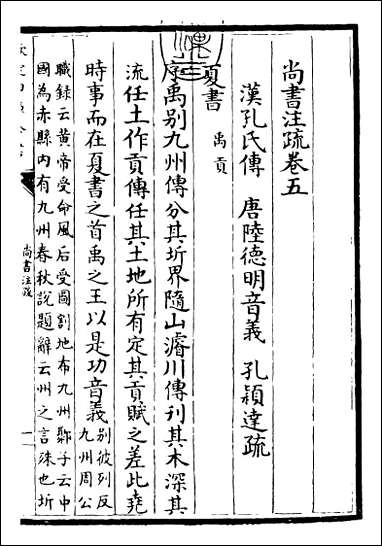 尚書注疏卷五
漢孔氏傳　唐陸德明音義　孔穎達疏
夏書
禹貢
序禹别九州傳分其圻界隨山濬川傳刋其木深其
流任土作貢傳任其土地所有定其貢賦之差此堯
時事而在夏書之首禹之王以是功音義
别彼列反
九州周公
職録云黄帝受命風后受圖割地布九州鄒子云中
國為赤縣内有九州春秋説題辭云州之言殊也圻
尚書注疏
一